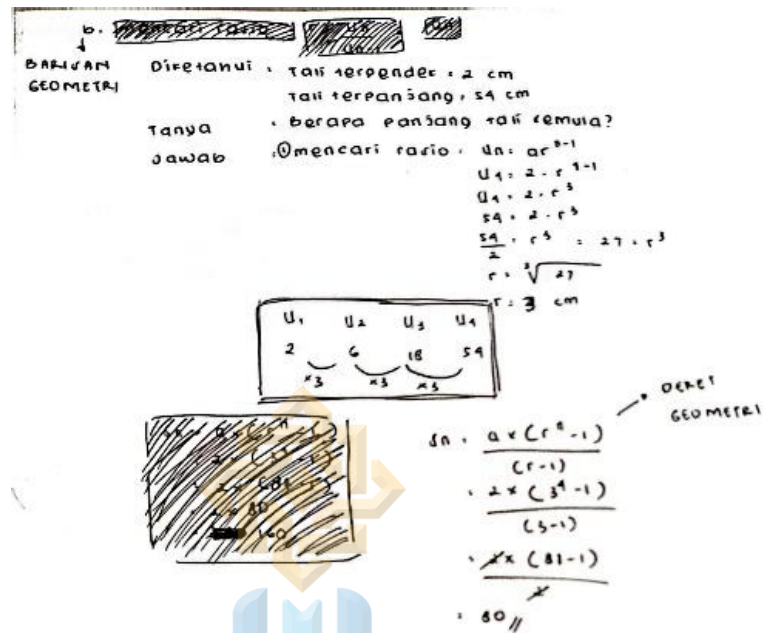 b. mencari rasio
BARISAN GEOMETRI
Diketahui : Tali terpendek : 2 cm
Tali terpanjang : 54 cm
Tanya : Berapa panjang tali semula?
Jawab : ① mencari rasio : Un : ar ⁿ⁻¹
U4 : 2 . r ⁴⁻¹
U4 : 2 . r³
54 : 2 . r³
54/2 : r³ : 27 : r³
r : ³√27
r : 3 cm
U1 U2 U3 U4
2 6 18 54
×3 ×3 ×3
DERET GEOMETRI
Sn : a × (rⁿ - 1) / (r-1)
: 2 × (3⁴ - 1) / (3-1)
: 2 × (81-1) / 2
: 80 //
160